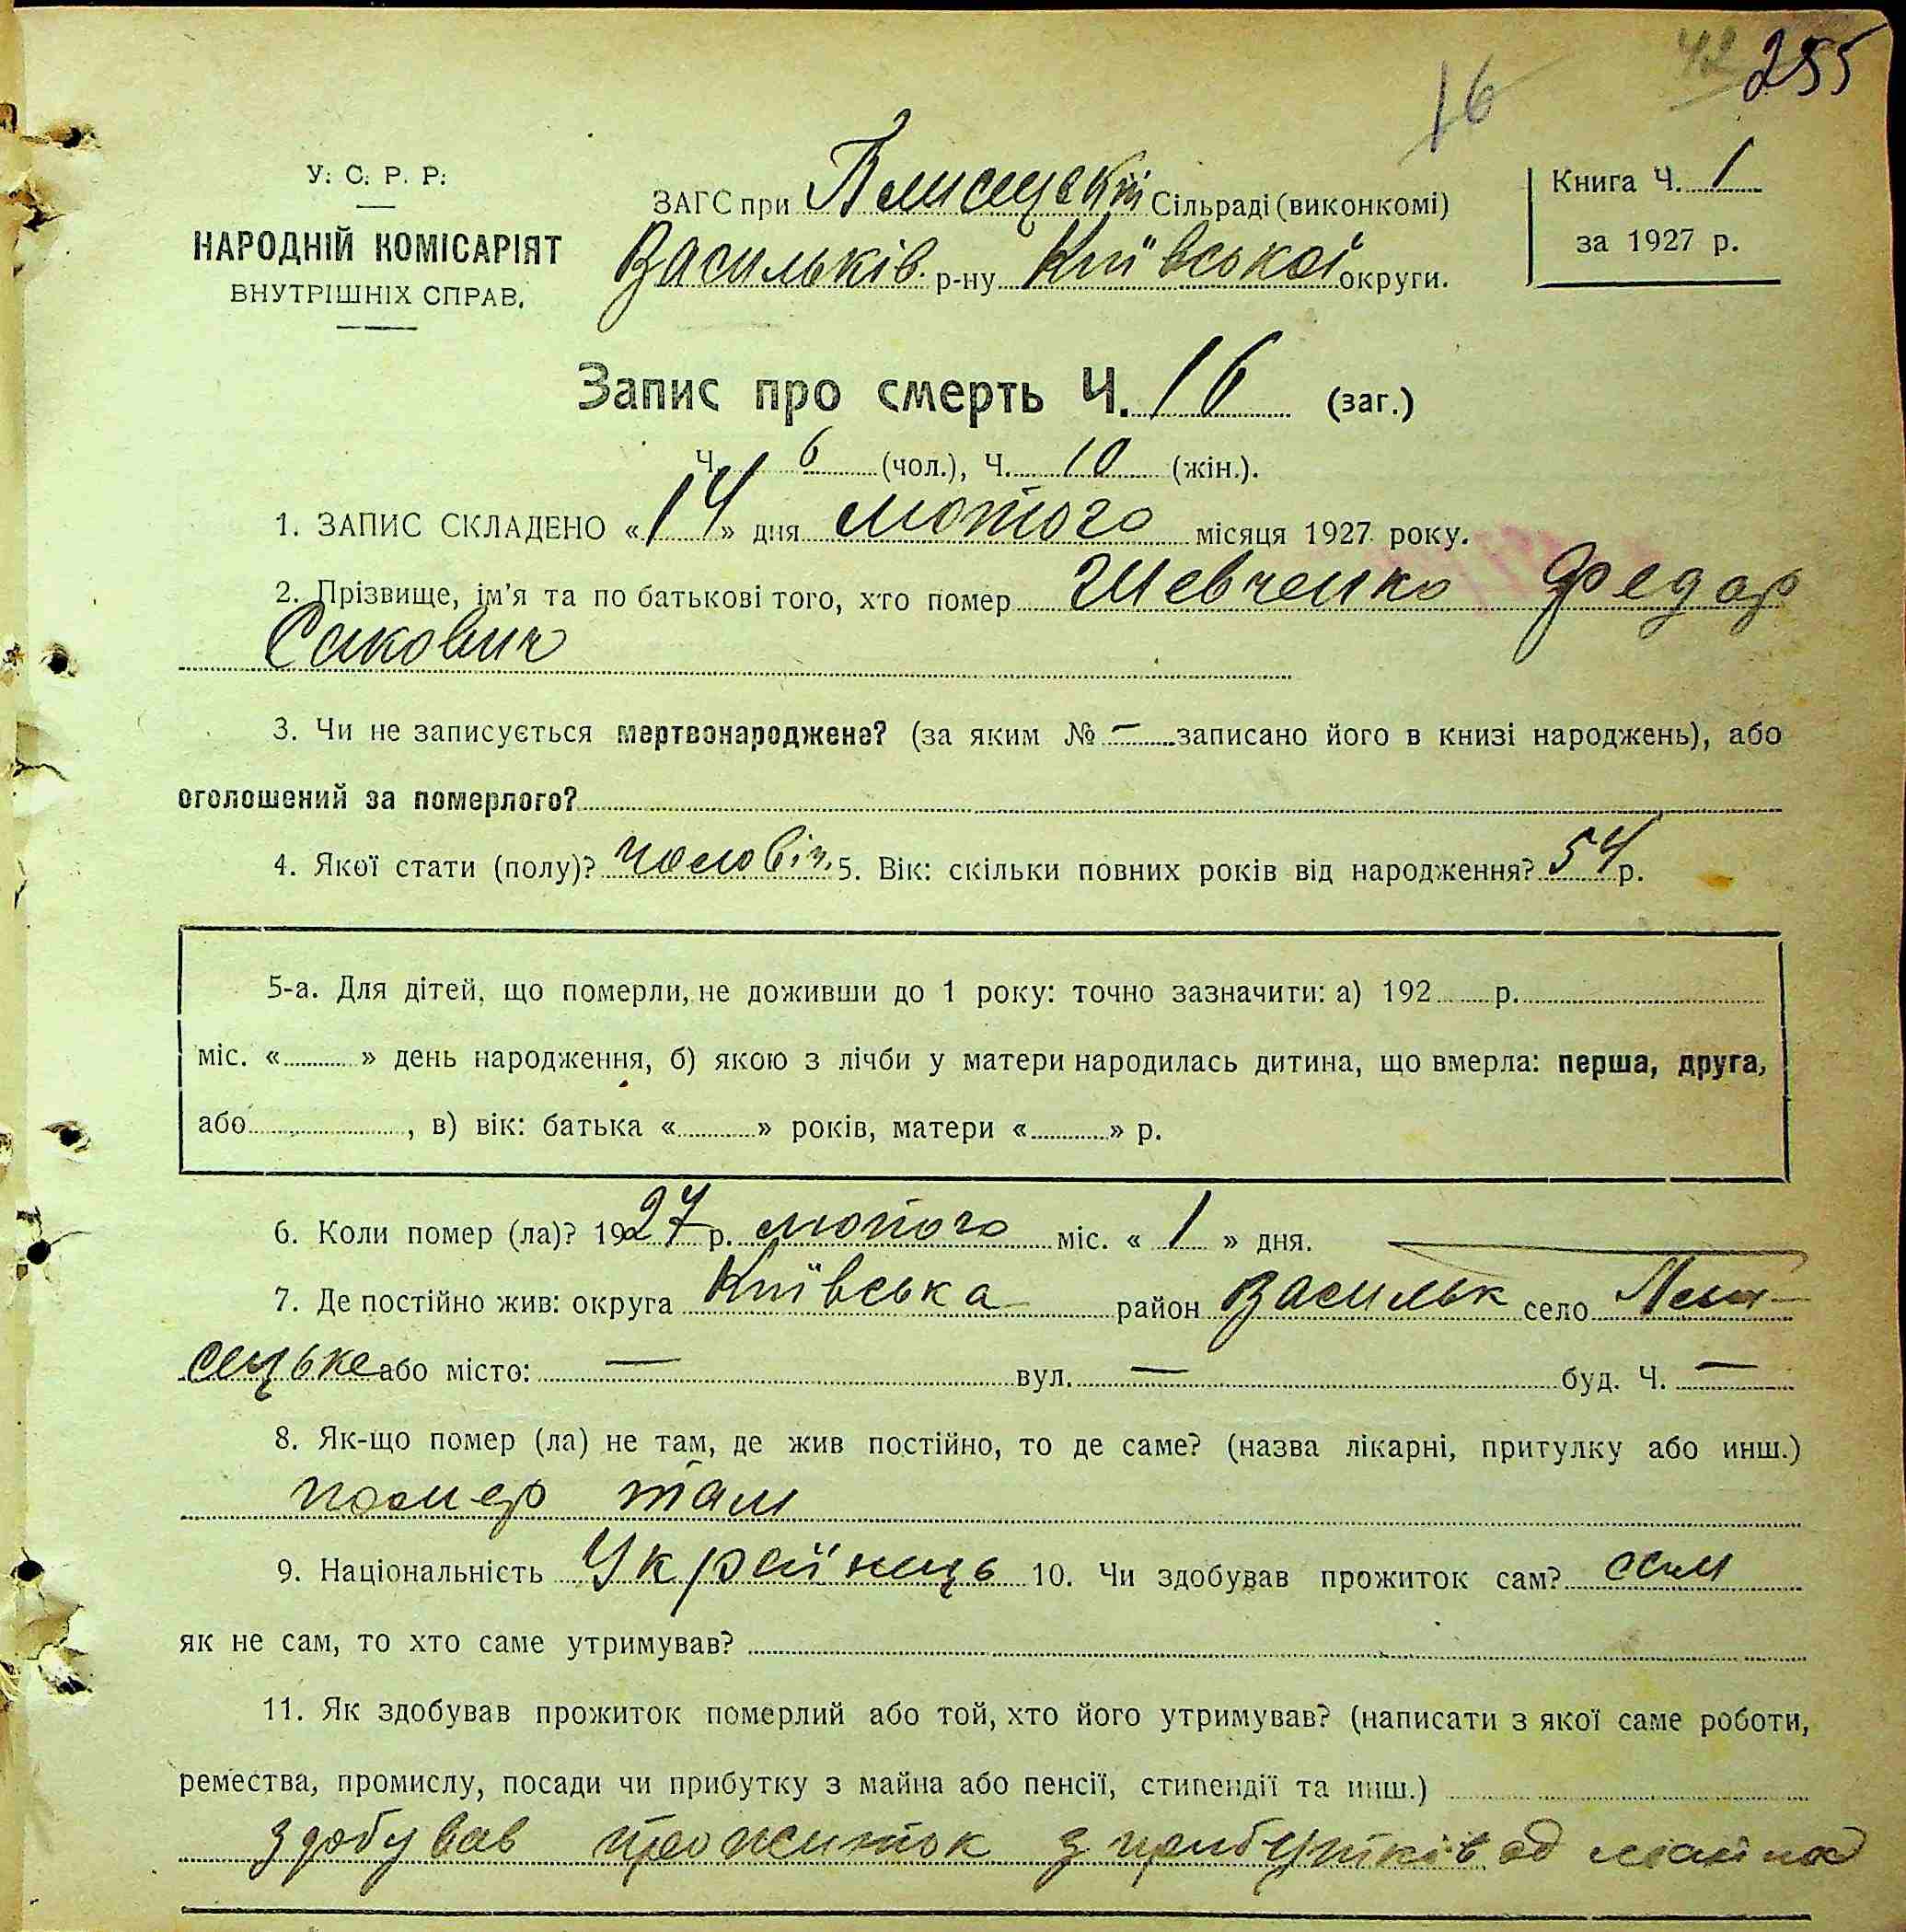 42 255
16
У. С. Р. Р.
НАРОДНІЙ КОМІСАРІЯТ
ВНУТРІШНІХ СПРАВ.
ЗАГС при Плисецькій Сільраді (виконкомі)
Васильків. р-ну Київської округи.
Книга Ч. 1
за 1927 р.
Запис про смерть Ч. 16 (заг.)
Ч. 6 (чол.), Ч. 10 (жін.).
1. ЗАПИС СКЛАДЕНО «14» дня лютого місяця 1927 року.
2. Прізвище, ім'я та по батькові того, хто помер Шевченко Федор
Сакович
3. Чи не записується мертвонароджене? (за яким № — записано його в книзі народжень), або
оголошений за померлого?
4. Якої стати (полу)? чоловіч. 5. Вік: скільки повних років від народження? 54 р.
5-а. Для дітей, що померли, не доживши до 1 року: точно зазначити: а) 192 р.
міс. « » день народження, б) якою з лічби у матери народилась дитина, що вмерла: перша, друга,
або , в) вік: батька « » років, матери « » р.
6. Коли помер (ла)? 1927 р. лютого міс. « 1 » дня.
7. Де постійно жив: округа Київська район Васильк село Пли-
сецьке або місто: — вул. — буд. Ч. —
8. Як-що помер (ла) не там, де жив постійно, то де саме? (назва лікарні, притулку або инш.)
помер там
9. Національність Українець 10. Чи здобував прожиток сам? сам
як не сам, то хто саме утримував?
11. Як здобував прожиток померлий або той, хто його утримував? (написати з якої саме роботи,
ремества, промислу, посади чи прибутку з майна або пенсії, стипендії та инш.)
здобував прожиток з прибутків од майна